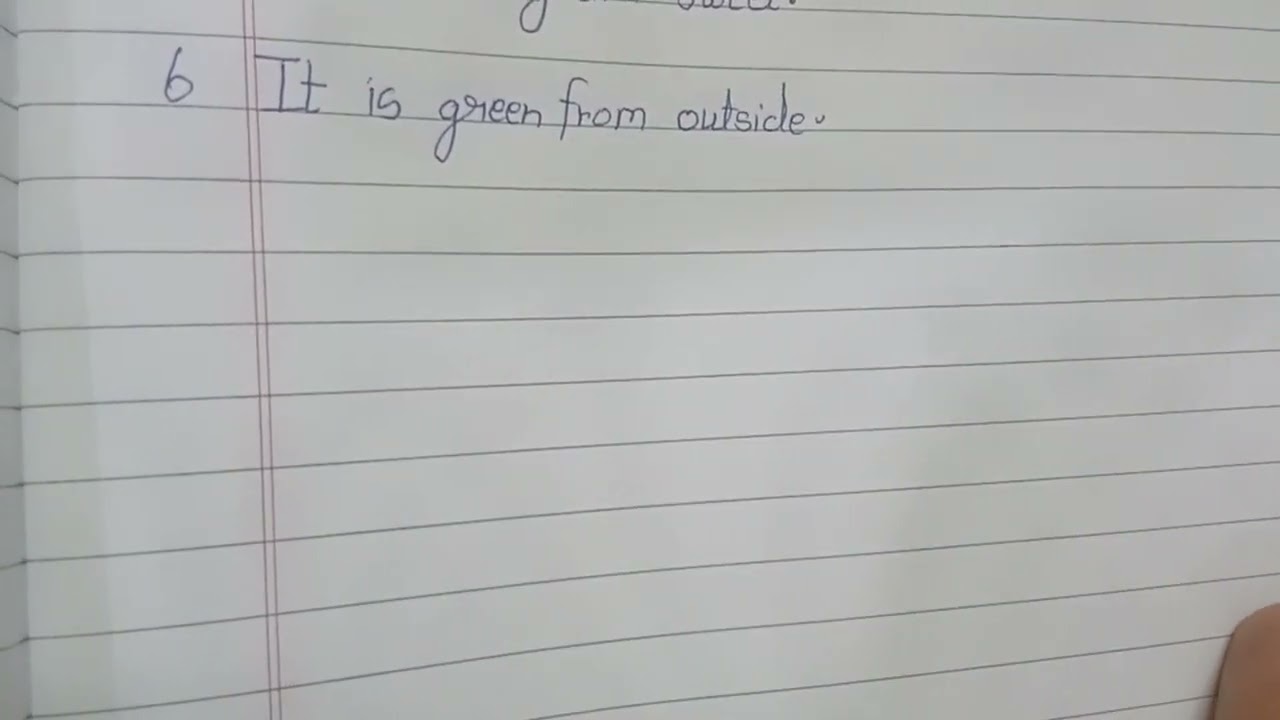 6 It is green from outside.